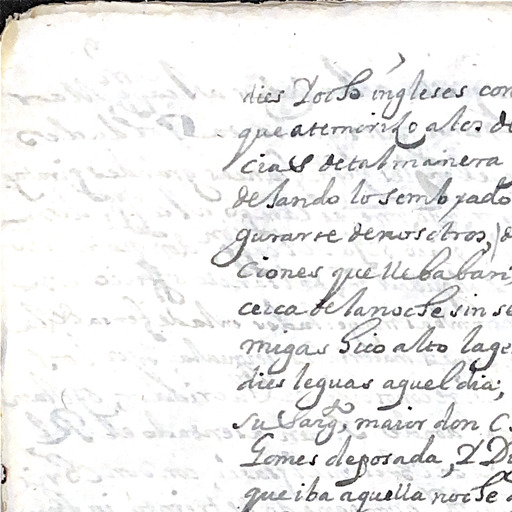 dies Y ocho ingleses con
que atemoriso a los de
cias de tal manera
desando lo sembrado
gurarse de nosotros,
ciones que llebaban,
cerca de la noche sin se
migas hiço alto la ge
dies leguas aquel dia;
su sarg. maior don C
Gomes de posada, Y D
que iba aquella noche